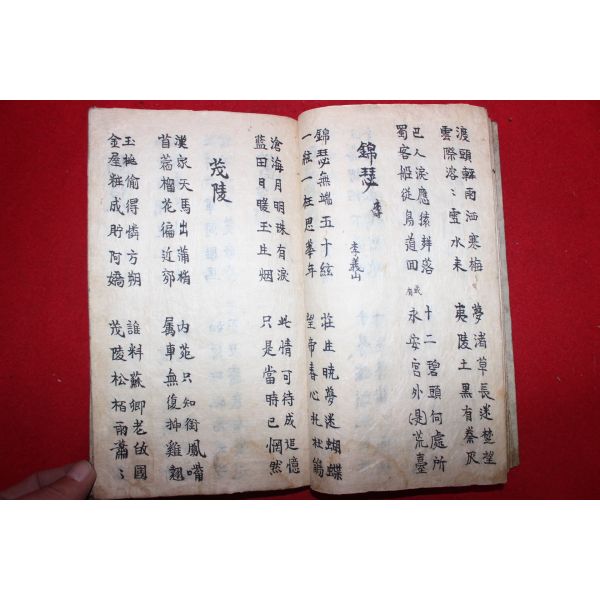 渡頭輕雨洒寒梅
雲際溶〻雪水来
夢渚草長迷楚望
夷陵土黒有秦灰
巴人淚應猿聲落
蜀客船從鳥道回
十二碧頭何處所
永安宮外(是)荒臺
錦瑟
李義山
錦瑟無端五十絃
一絃一柱思華年
莊生曉夢迷蝴蝶
望帝春心托杜鵑
滄海月明珠有淚
藍田日暖玉生烟
此情可待成追憶
只是當時已惘然
茂陵
漢家天馬出蒲梢
苜蓿榴花徧近郊
內苑只知銜鳳嘴
屬車無復挿雞翹
玉桃偷得憐方朔
金屋粧成貯阿嬌
誰料蘇卿老故國
茂陵松栢雨蕭〻